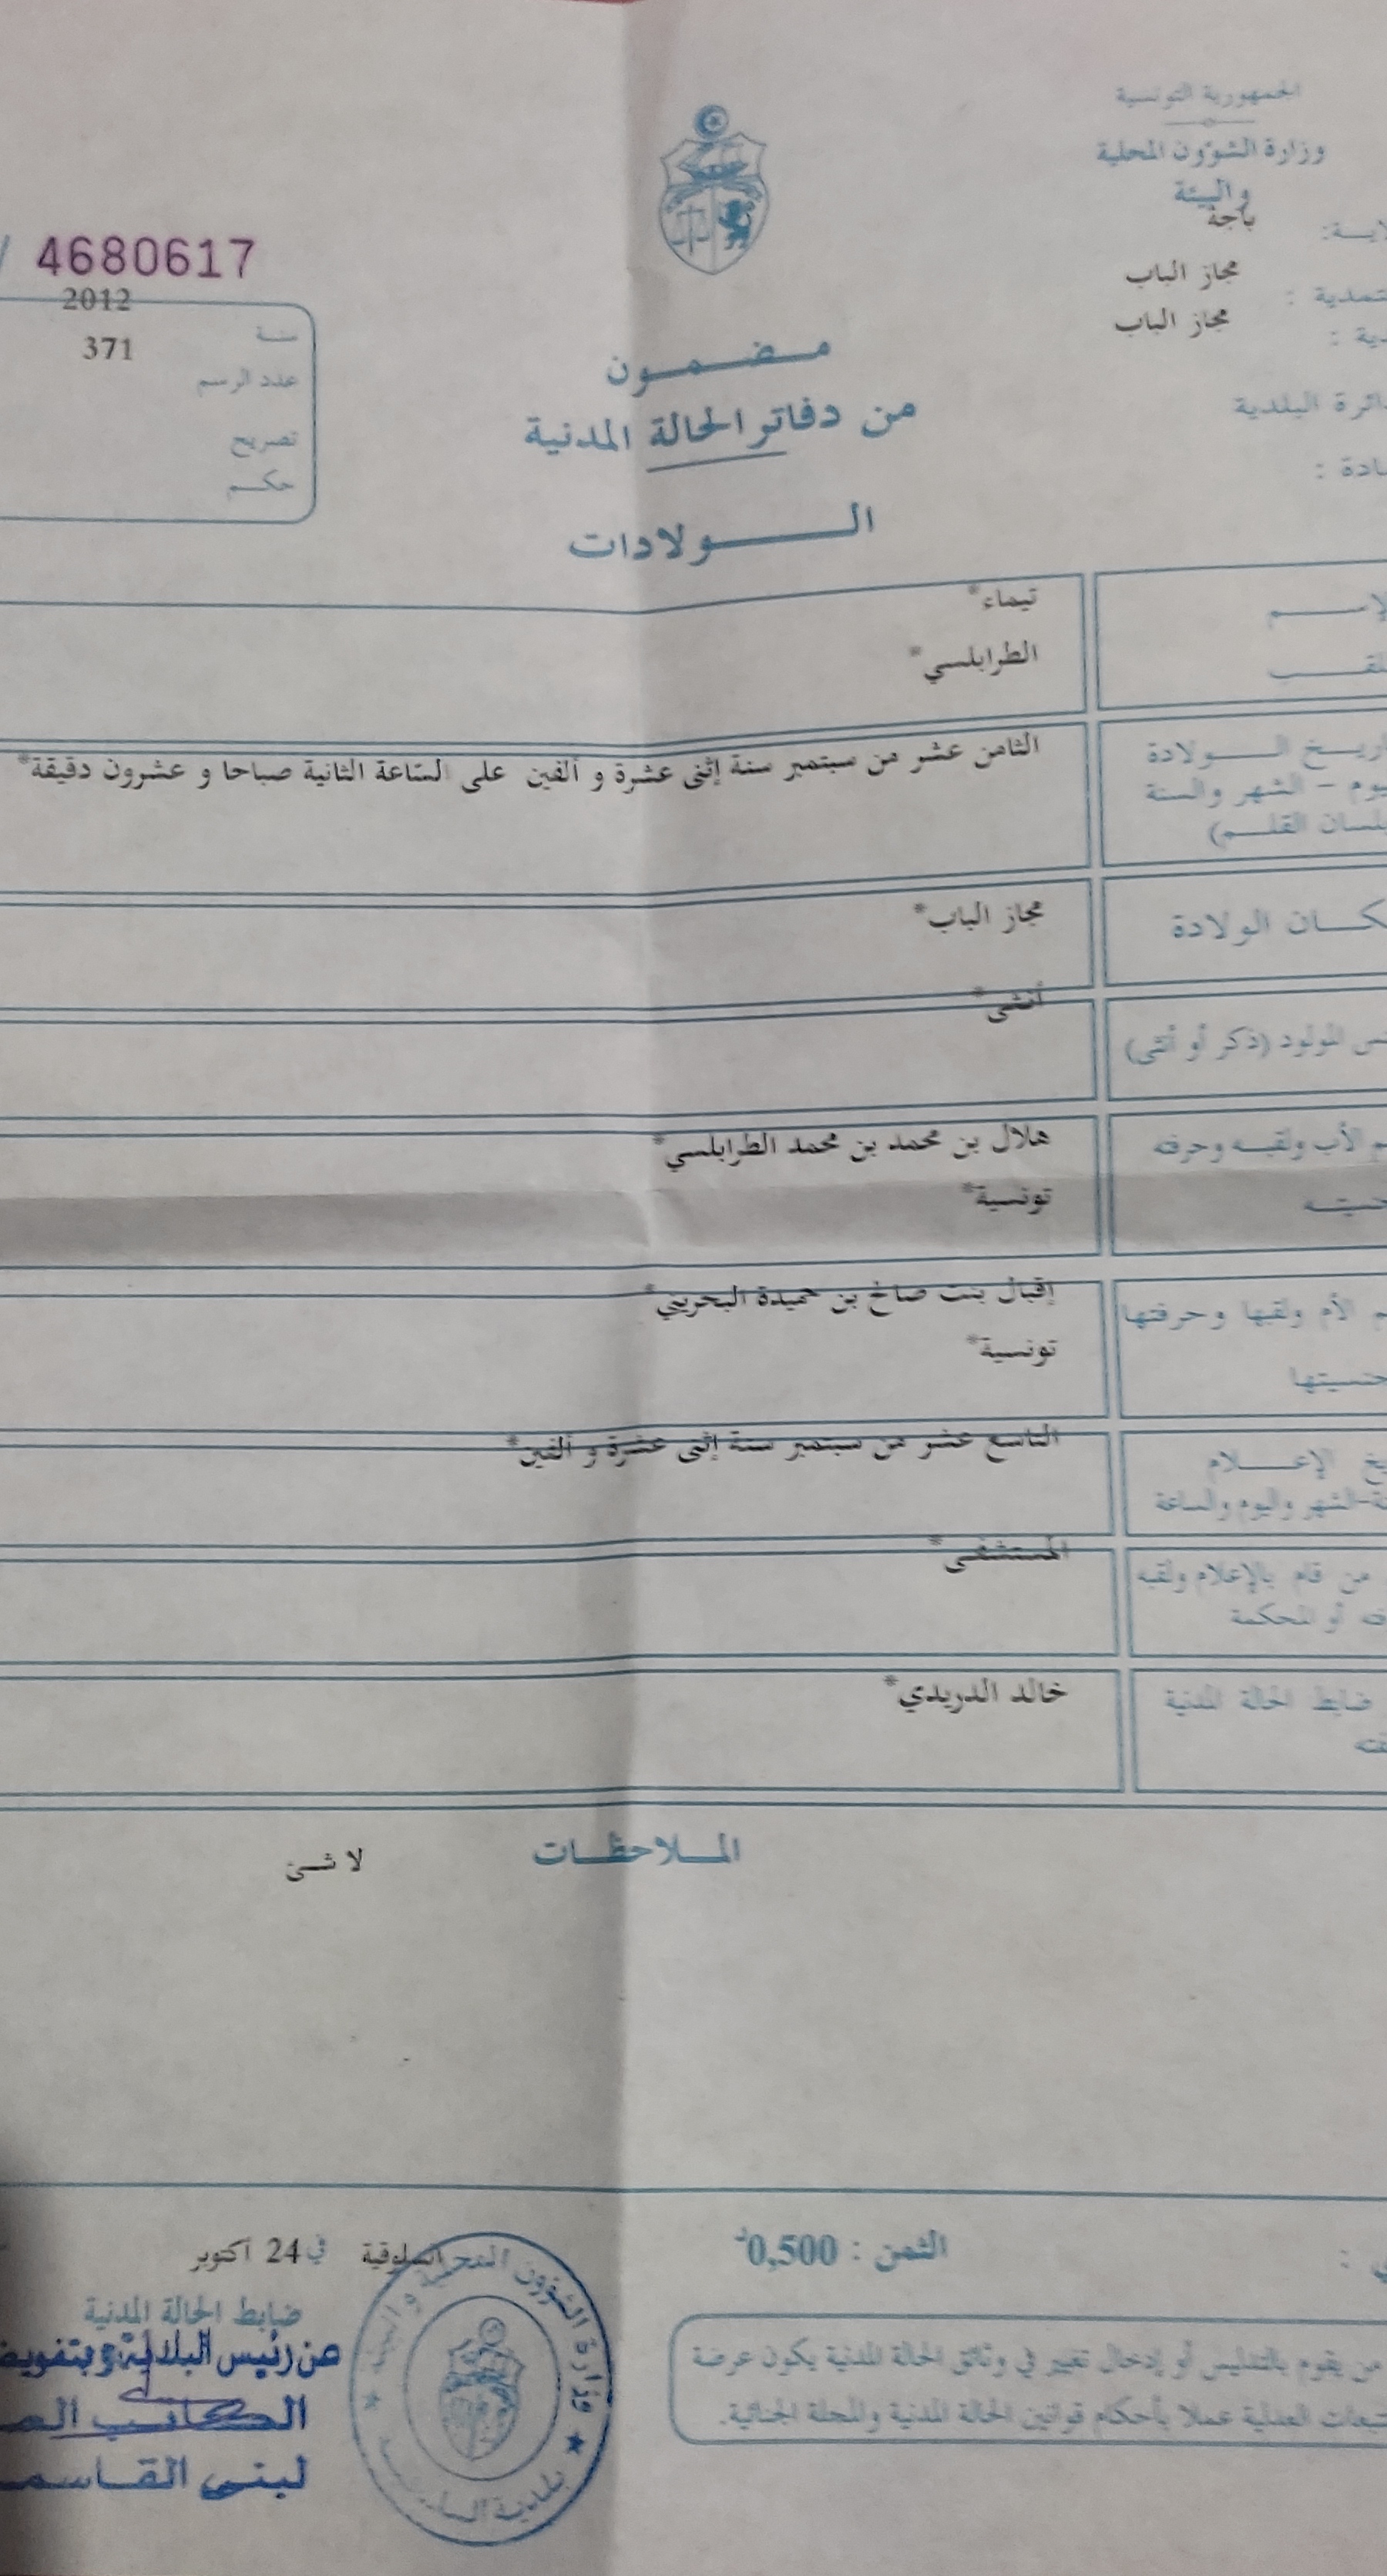 الجمهورية التونسية
وزارة الشؤون المحلية
والبيئة
باجة
مجاز الباب
مجاز الباب
4680617
2012
سنة
371
عدد الرسم
تصريح
حكم
مضمون
من دفاتر الحالة المدنية
الولادات
تيماء*
الطرابلسي*
الولادة
الثامن عشر من سبتمبر سنة إثنى عشرة و ألفين على الساعة الثانية صباحا و عشرون دقيقة*
الشهر والسنة
القلم)
الولادة
مجاز الباب*
المولود (ذكر أو أنثى)
أنثى*
الأب ولقبه وحرفته
هلال بن محمد بن محمد الطرابلسي*
تونسية*
الأم ولقبها وحرفتها
إقبال بنت صالح بن حميدة البحريني*
تونسية*
الإعلام
التاسع عشر من سبتمبر سنة إثنى عشرة و ألفين*
واليوم والساعة
من قام بالإعلام ولقبه
المستشفى*
أو المحكمة
ضابط الحالة المدنية
خالد الدريدي*
الملاحظات
لا شئ
الثمن : 0,500د
السلوقية في 24 اكتوبر
ضابط الحالة المدنية
عن رئيس البلدية وبتفويض
الكاتب
لبنى
وزارة الشؤون المحلية والبيئة
بلدية
من يقوم بالتدليس أو إدخال تغيير في وثائق الحالة المدنية يكون عرضة
العدلية عملا بأحكام قوانين الحالة المدنية والمجلة الجنائية.